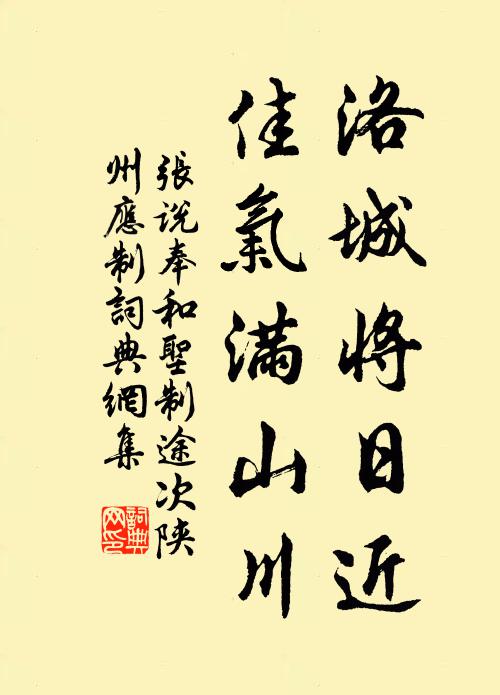 洛城将日近
佳氣滿山川
張説奉和聖制途次陝
州應制詞典網集
詞典
网印